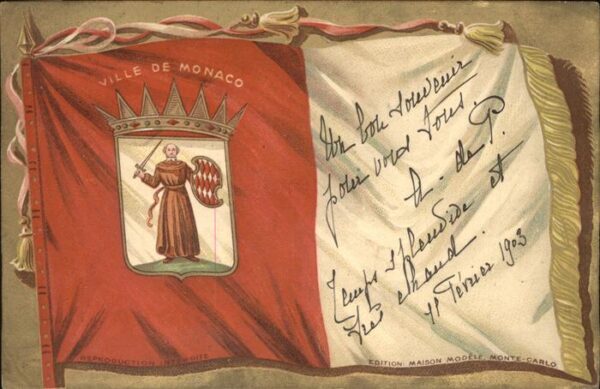 VILLE DE MONACO
Un bon souvenir
pour vous tous.
A. de P.
Temps splendide et
très chaud.
11 février 1903
REPRODUCTION INTERDITE
EDITION: MAISON MODÈLE, MONTE-CARLO